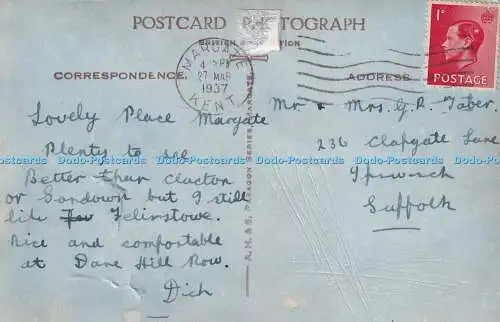 POSTCARD PHOTOGRAPH
BRITISH PRODUCTION
CORRESPONDENCE
ADDRESS
MARGATE
4 PM
27 MAR
1937
KENT
1D
POSTAGE
Lovely Place Margate
Plenty to see
Better than Clacton
or Sandown but I still
like Felixstowe.
Nice and comfortable
at Dane Hill Row.
Dich
Mr & Mrs. G. R. Taber.
236 Clapgate Lane
Ipswich
Suffolk
A.H.&S. PARAGON SERIES, MARGATE.
Dodo-Postcards Dodo-Postcards Dodo-Postcards Dodo-Postcards Dodo-Postcards Dodo-Postcards